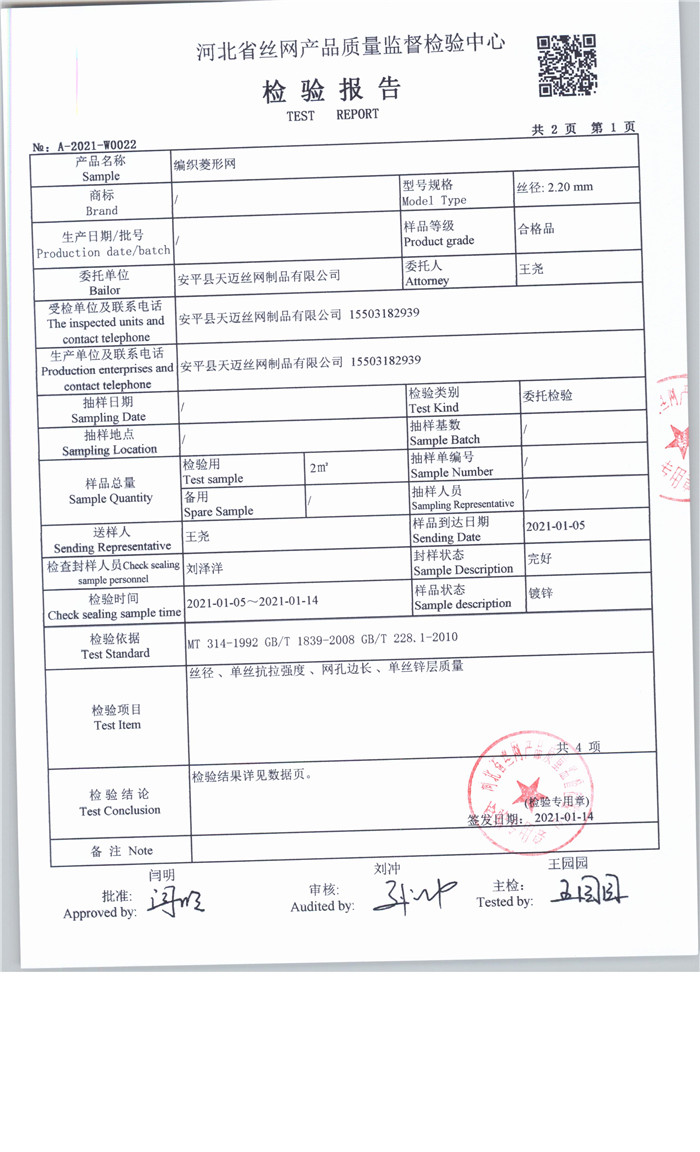 河北省丝网产品质量监督检验中心
检验报告
TEST REPORT
共 2 页 第 1 页
№: A-2021-W0022
产品名称
Sample
编织菱形网
商标
Brand
/
型号规格
Model Type
丝径: 2.20 mm
生产日期/批号
Production date/batch
/
样品等级
Product grade
合格品
委托单位
Bailor
安平县天迈丝网制品有限公司
委托人
Attorney
王尧
受检单位及联系电话
The inspected units and
contact telephone
安平县天迈丝网制品有限公司 15503182939
生产单位及联系电话
Production enterprises and
contact telephone
安平县天迈丝网制品有限公司 15503182939
抽样日期
Sampling Date
/
检验类别
Test Kind
委托检验
抽样地点
Sampling Location
/
抽样基数
Sample Batch
/
样品总量
Sample Quantity
检验用
Test sample
2㎡
抽样单编号
Sample Number
/
备用
Spare Sample
/
抽样人员
Sampling Representative
/
送样人
Sending Representative
王尧
样品到达日期
Sending Date
2021-01-05
检查封样人员Check sealing
sample personnel
刘泽洋
封样状态
Sample Description
完好
检验时间
Check sealing sample time
2021-01-05～2021-01-14
样品状态
Sample description
镀锌
检验依据
Test Standard
MT 314-1992 GB/T 1839-2008 GB/T 228.1-2010
检验项目
Test Item
丝径 、单丝抗拉强度 、网孔边长 、单丝锌层质量
共 4 项
检验结论
Test Conclusion
检验结果详见数据页。
(检验专用章)
签发日期: 2021-01-14
备 注 Note
闫明
刘冲
王园园
批准:
Approved by:
闫明
审核:
Audited by:
刘冲
主检:
Tested by:
王园园